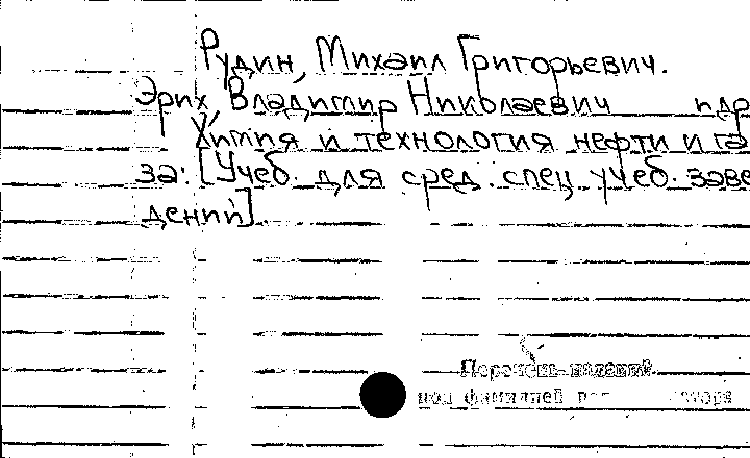 Рудин, Михаил Григорьевич.
Эрих, Владимир Николаевич и др
Химия и технология нефти и га
за: [Учеб. для сред. спец. учеб. заве
дений].
Перечень изданий
под фамилией автора